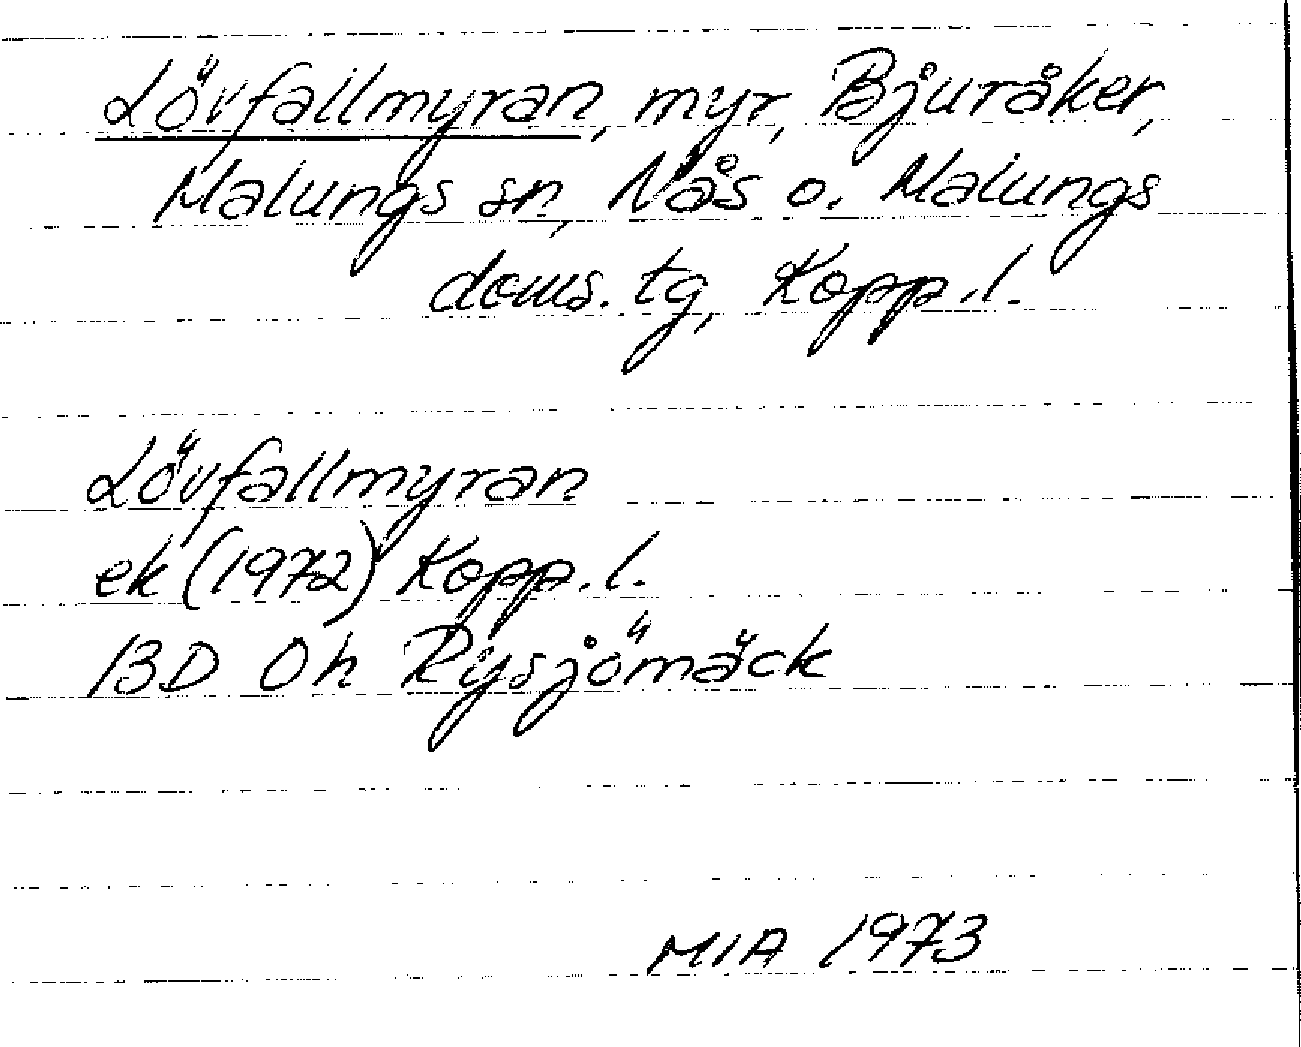 Lövfallmyran, myr, Bjuråker,
Malungs sn, Nås o. Malungs
doms. tg, Kopp. l.
Lövfallmyran
ek (1972) Kopp. l.
13D 0h Rysjömäck
MIA 1973